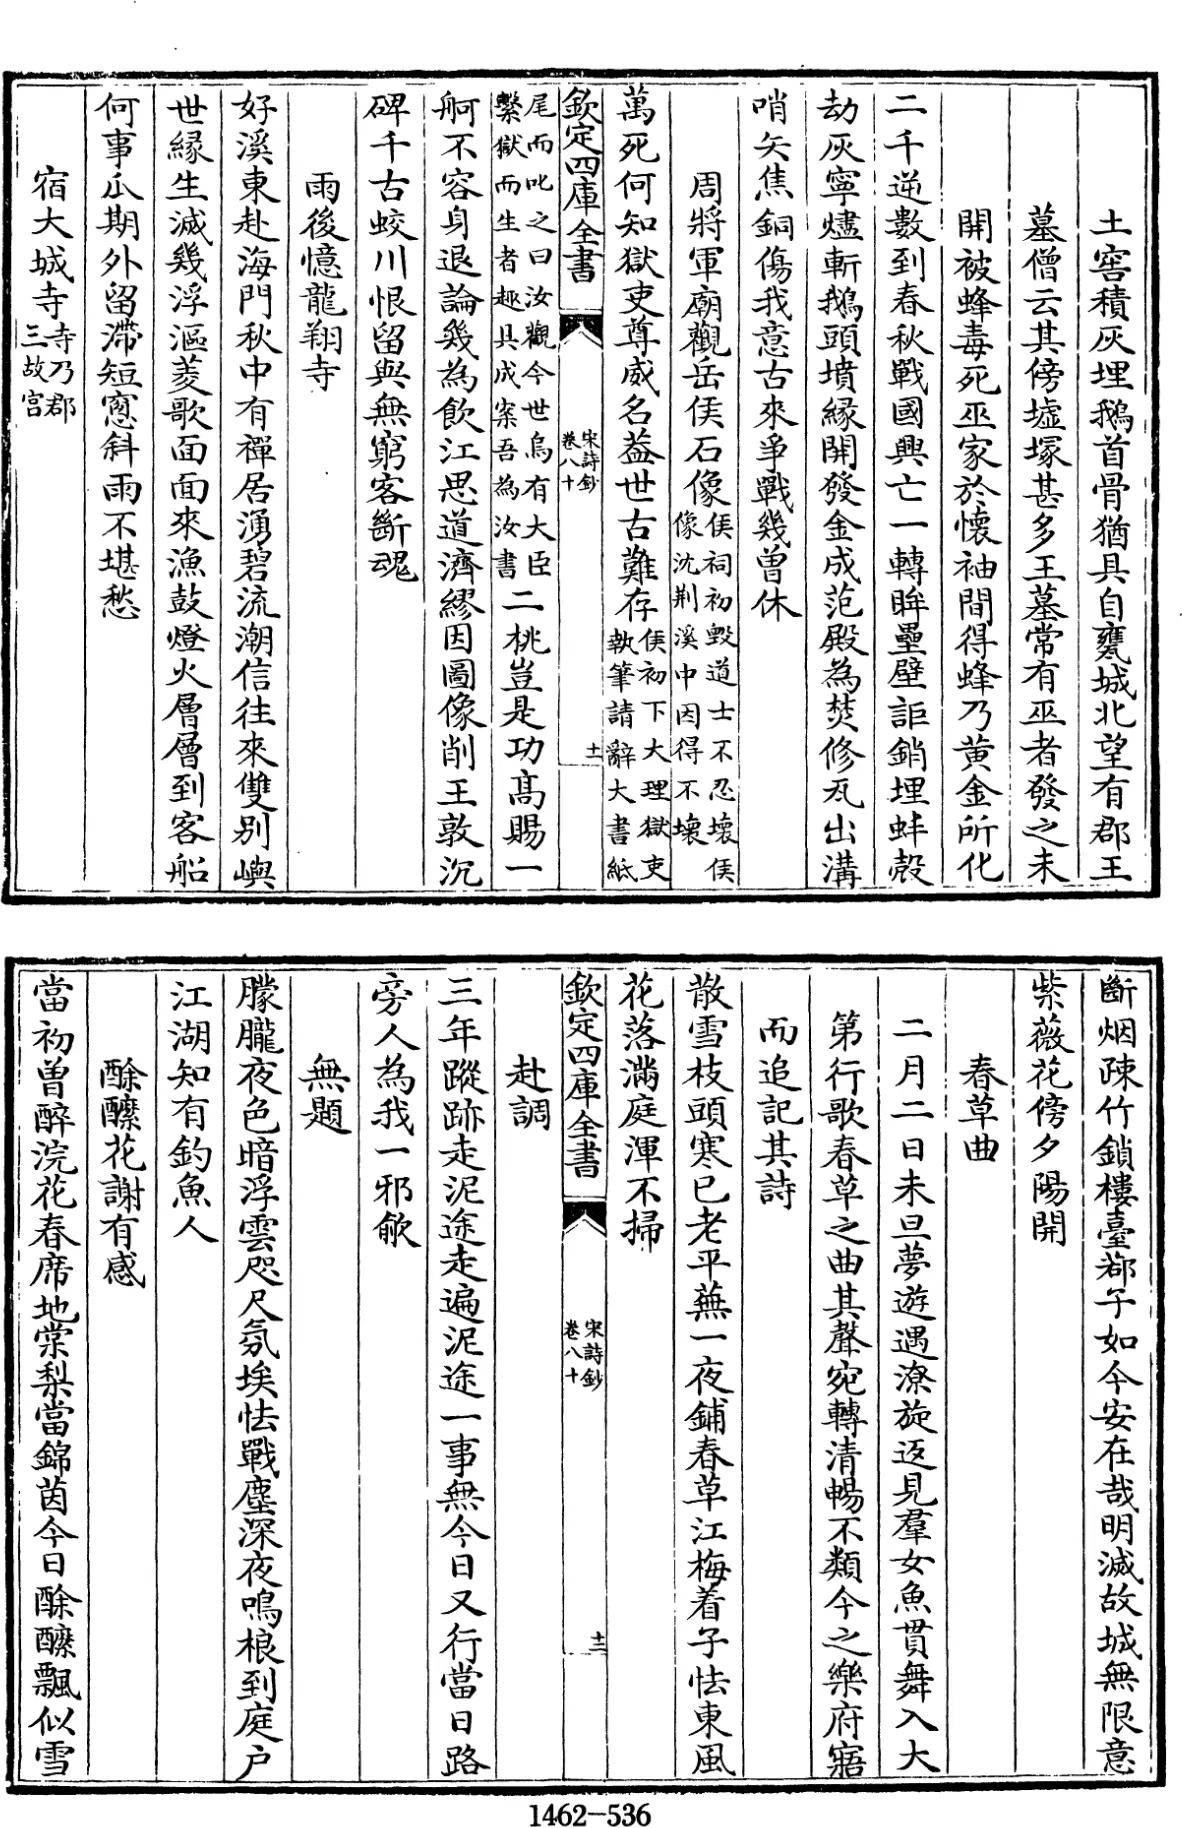 土窖積灰埋鵝首骨猶具自甕城北望有郡王
墓僧云其傍墟塚甚多王墓常有巫者發之未
開被蜂毒死巫家於懷袖間得蜂乃黄金所化
二千逆數到春秋戰國興亡一轉眸壘壁詎銷埋蚌殼
劫灰寧燼斬鵝頭墳縁開發金成范殿為焚修瓦出溝
哨矢焦銅傷我意古來爭戰幾曾休
周將軍廟觀岳侯石像侯祠初毀道士不忍壞侯
像沈荆溪中因得不壞
萬死何知獄吏尊威名益世古難存侯初下大理獄吏
執筆請辭大書紙
欽定四庫全書
宋詩鈔
卷八十
十一
尾而叱之曰汝觀今世烏有大臣
繫獄而生者趣具成案吾為汝書二桃豈是功髙賜一
舸不容身退論幾為飲江思道濟繆因圖像削王敦沉
碑千古蛟川恨留與無窮客斷魂
雨後憶龍翔寺
好溪東赴海門秋中有禪居湧碧流潮信往來雙别嶼
世緣生滅幾浮漚菱歌面面來漁鼓燈火層層到客船
何事瓜期外留滯短窻斜雨不堪愁
宿大城寺寺乃郡
三故宫
斷烟疎竹鎖樓臺鄀子如今安在哉明滅故城無限意
紫薇花傍夕陽開
春草曲
二月二日未旦夢遊遇潦旋返見羣女魚貫舞入大
第行歌春草之曲其聲宛轉清暢不類今之樂府寤
而追記其詩
散雪枝頭寒已老平蕪一夜鋪春草江梅着子怯東風
花落滿庭渾不掃
欽定四庫全書
宋詩鈔
卷八十
十二
赴調
三年蹤跡走泥途走遍泥途一事無今日又行當日路
旁人為我一邪歈
無題
朦朧夜色暗浮雲咫尺氛埃怯戰塵深夜鳴桹到庭户
江湖知有釣魚人
酴醾花謝有感
當初曽醉浣花春席地棠梨當錦茵今日酴醾飄似雪
1462-536